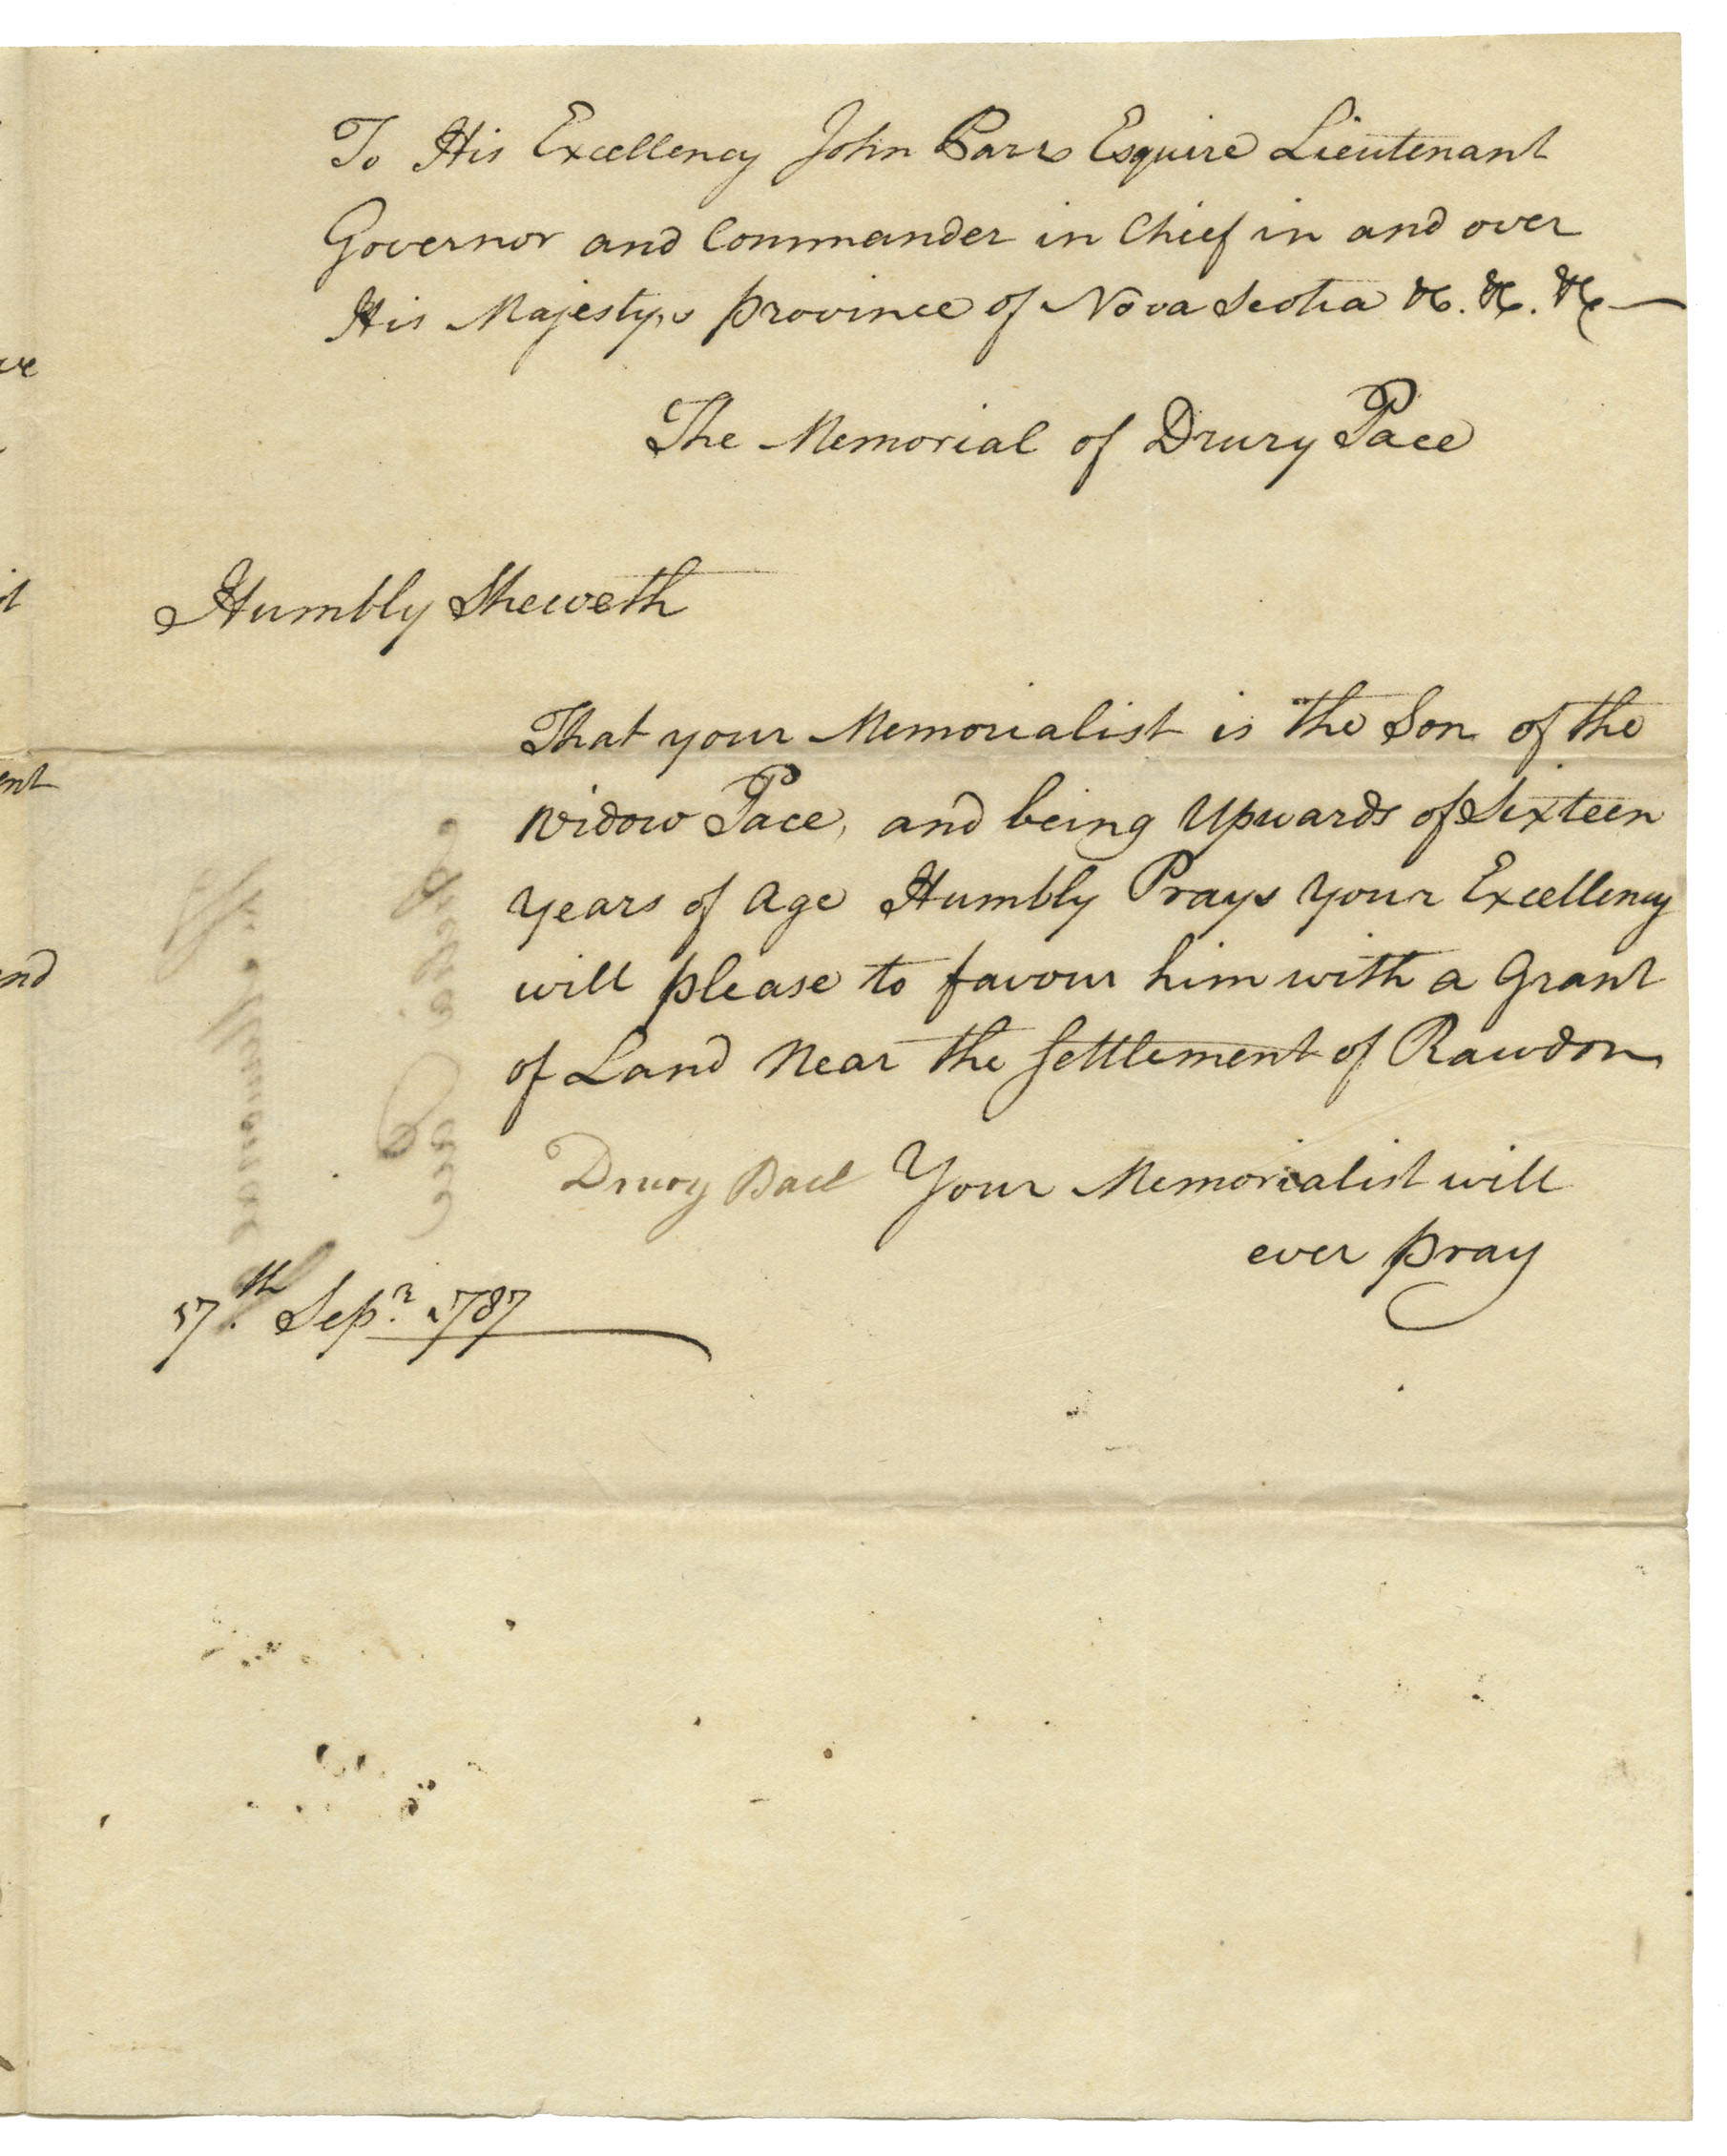 To His Excellency John Parr Esquire Lieutenant
Governor and Commander in Chief in and over
His Majesty,s province of Nova Scotia &c. &c. &c
The Memorial of Drury Pace
Humbly Sheweth
That your Memorialist is the Son of the
Widow Pace, and being Upwards of Sixteen
years of age Humbly Prays your Excellency
will please to favour him with a Grant
of Land Near the Settlement of Rawdon
Drury Pace Your Memorialist will
ever pray
17.th Sepr. 1787
ve
ent
and